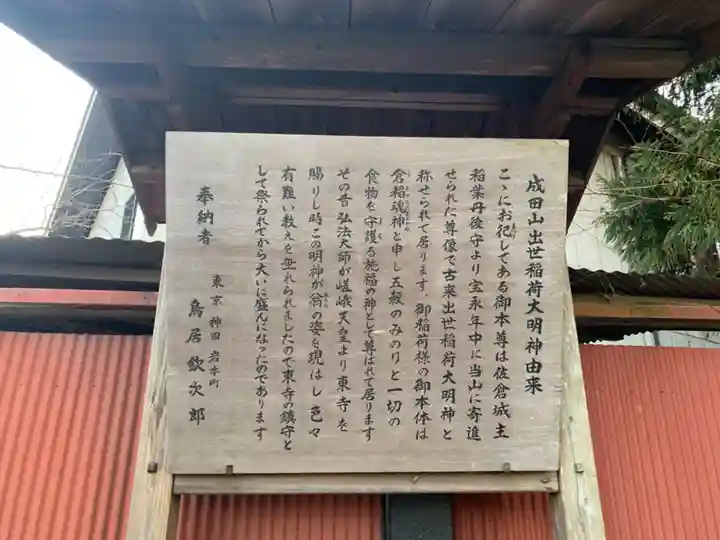 成田山出世稲荷大明神由来
こゝにお祀してある御本尊は佐倉城主
稲葉丹後守より宝永年中に当山に寄進
せられた尊像で古来出世稲荷大明神と
称せられて居ります、御稲荷様の御本体は
倉稲魂神と申し五穀のみのりと一切の
食物を守護る施福の神として尊ばれて居ります
その昔弘法大師が嵯峨天皇より東寺を
賜りし時この明神が翁の姿を現はし色々
有難い教えを垂れられましたので東寺の鎮守と
して祭られてから大いに盛んになったのであります
奉納者
東京 神田 岩本町
鳥居欽次郎